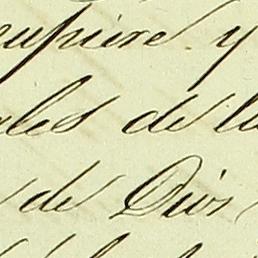 cupiere y
les de la
de Dios